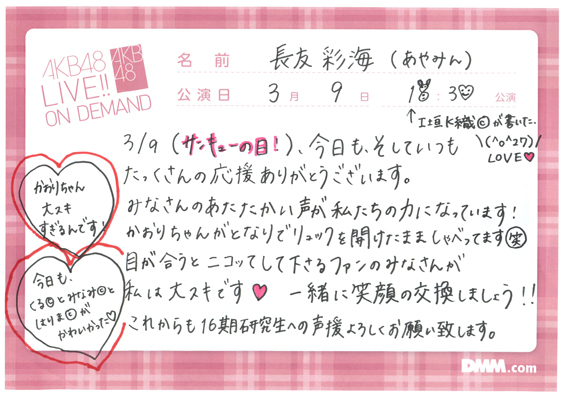 AKB48
LIVE!!
ON DEMAND
AKB
48
名前 長友彩海(あやみん)
公演日 3月 9日 18:30 公演
↑エ豆K織が書いた…
\(^o^27)/
LOVE♥
3/9(サンキューの日!)、今日も、そしていつも
たっくさんの応援ありがとうございます。
みなさんのあたたかい声が私たちの力になっています!
かおりちゃんがとなりでリュックを開けたまましゃべってます笑
目が合うとニコッてして下さるファンのみなさんが
私は大スキです♥ 一緒に笑顔の交換しましょう!!
これからも16期研究生への声援よろしくお願い致します。
かおりちゃん
大スキ
すぎるんです!
今日も、
くるとみなみと
はりまが
かわいかった♡
DMM.com